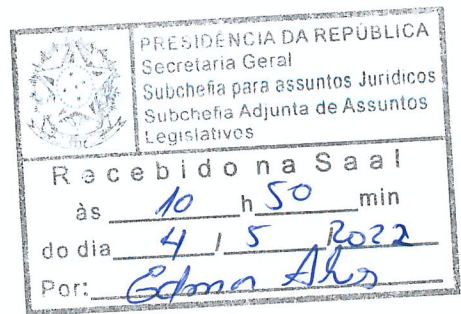 PRESIDÊNCIA DA REPÚBLICA
Secretaria Geral
Subchefia para assuntos Jurídicos
Subchefia Adjunta de Assuntos
Legislativos
Recebido na Saal
às 10 h 50 min
do dia 4 / 5 / 2022
Por: